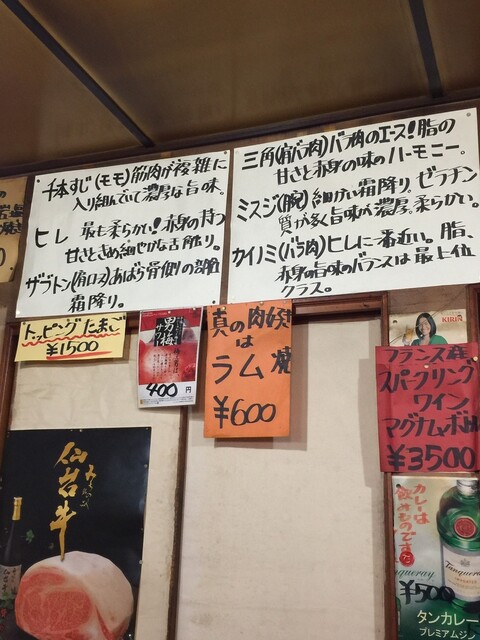 千本すじ(モモ)筋肉が複雑に
入り組んでいて濃厚な旨味。
ヒレ 最も柔らかい!赤身の持つ
甘さときめ細やかな舌触り。
ザブトン(肩ロース)あばら骨側の部位
霜降り。
三角(肩バラ肉)バラ肉のエース!脂の
甘さと赤身の味のハーモニー。
ミスジ(腕)細かい霜降り。ゼラチン
質が多く旨味が濃厚。柔らかい。
カイノミ(バラ肉)ヒレに一番近い。脂、
赤身の旨味のバランスは最上位
クラス。
トッピングたまご
¥1500
男梅
サワー
400円
真の肉好き
は
ラム焼
¥600
KIRIN
フランス産
スパークリング
ワイン
マグナムボトル
¥3500
仙台牛
カレーは
飲みものです
Tanqueray
¥500
タンカレー
プレミアムジン